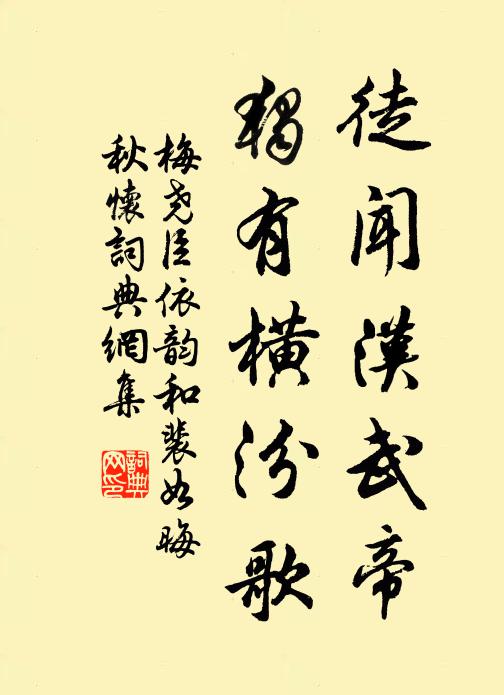 徒闻漢武帝
獨有橫汾歌
梅尧臣依韵和裴如晦
秋懷詞典網集
詞典
网印